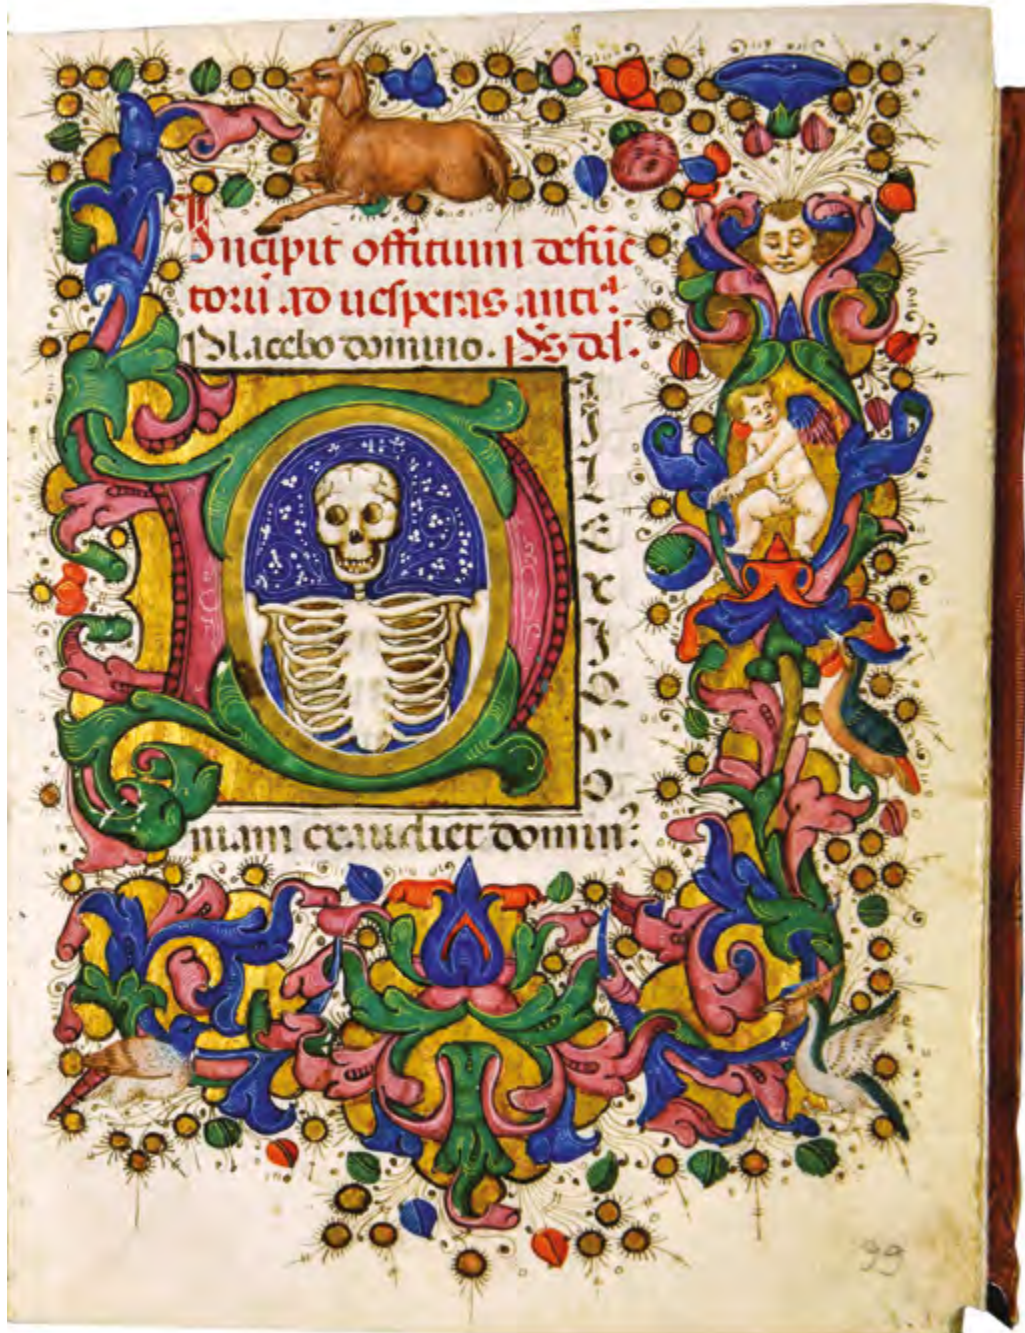 Incipit offitium defūc
torū ad uesperas antiᵃ.
Placebo domino. Ps dd.
DILEXIQVO
niam exaudiet domin⁹
99